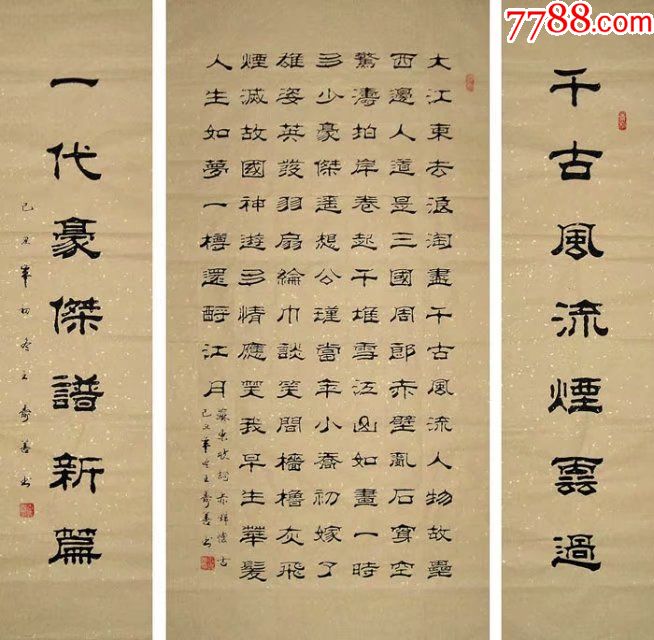 7788.com
千古風流煙雲過
大江東去浪淘盡千古風流人物故壘
西邊人道是三國周郎赤壁亂石穿空
驚濤拍岸卷起千堆雪江山如畫一時
多少豪傑遙想公瑾當年小喬初嫁了
雄姿英發羽扇綸巾談笑間檣櫓灰飛
煙滅故國神遊多情應笑我早生華髮
人生如夢一樽還酹江月
蘇東坡詞赤壁懷古
己丑年王壽善書
一代豪傑譜新篇
己丑年初冬王壽善書